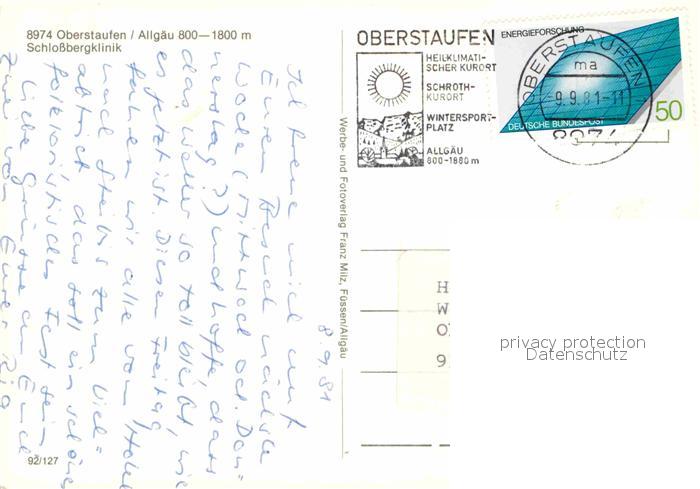 8974 Oberstaufen / Allgäu 800—1800 m
Schloßbergklinik
OBERSTAUFEN
HEILKLIMATI-
SCHER KURORT
SCHROTH-
KURORT
WINTERSPORT-
PLATZ
ALLGÄU
800-1880 m
ENERGIEFORSCHUNG
DEUTSCHE BUNDESPOST
50
OBERSTAUFEN
ma
-9.9.81-11
8974
Werbe- und Fotoverlag Franz Milz, Füssen/Allgäu
8.9.81
Ich freue mich auf
Euren Besuch nächste
Woche (Mittwoch od. Don-
nerstag?) und hoffe, dass
das Wetter so toll bleibt, wie
es jetzt ist. Diesen Freitag
fahren wir alle vom Hotel
nach Steibis zum Vieh-
abtrieb das soll ein schönes
folkloristisches Fest sein
Liebe Grüsse an Euch
zwei von Eurer
H
W
6
privacy protection
Datenschutz
92/127